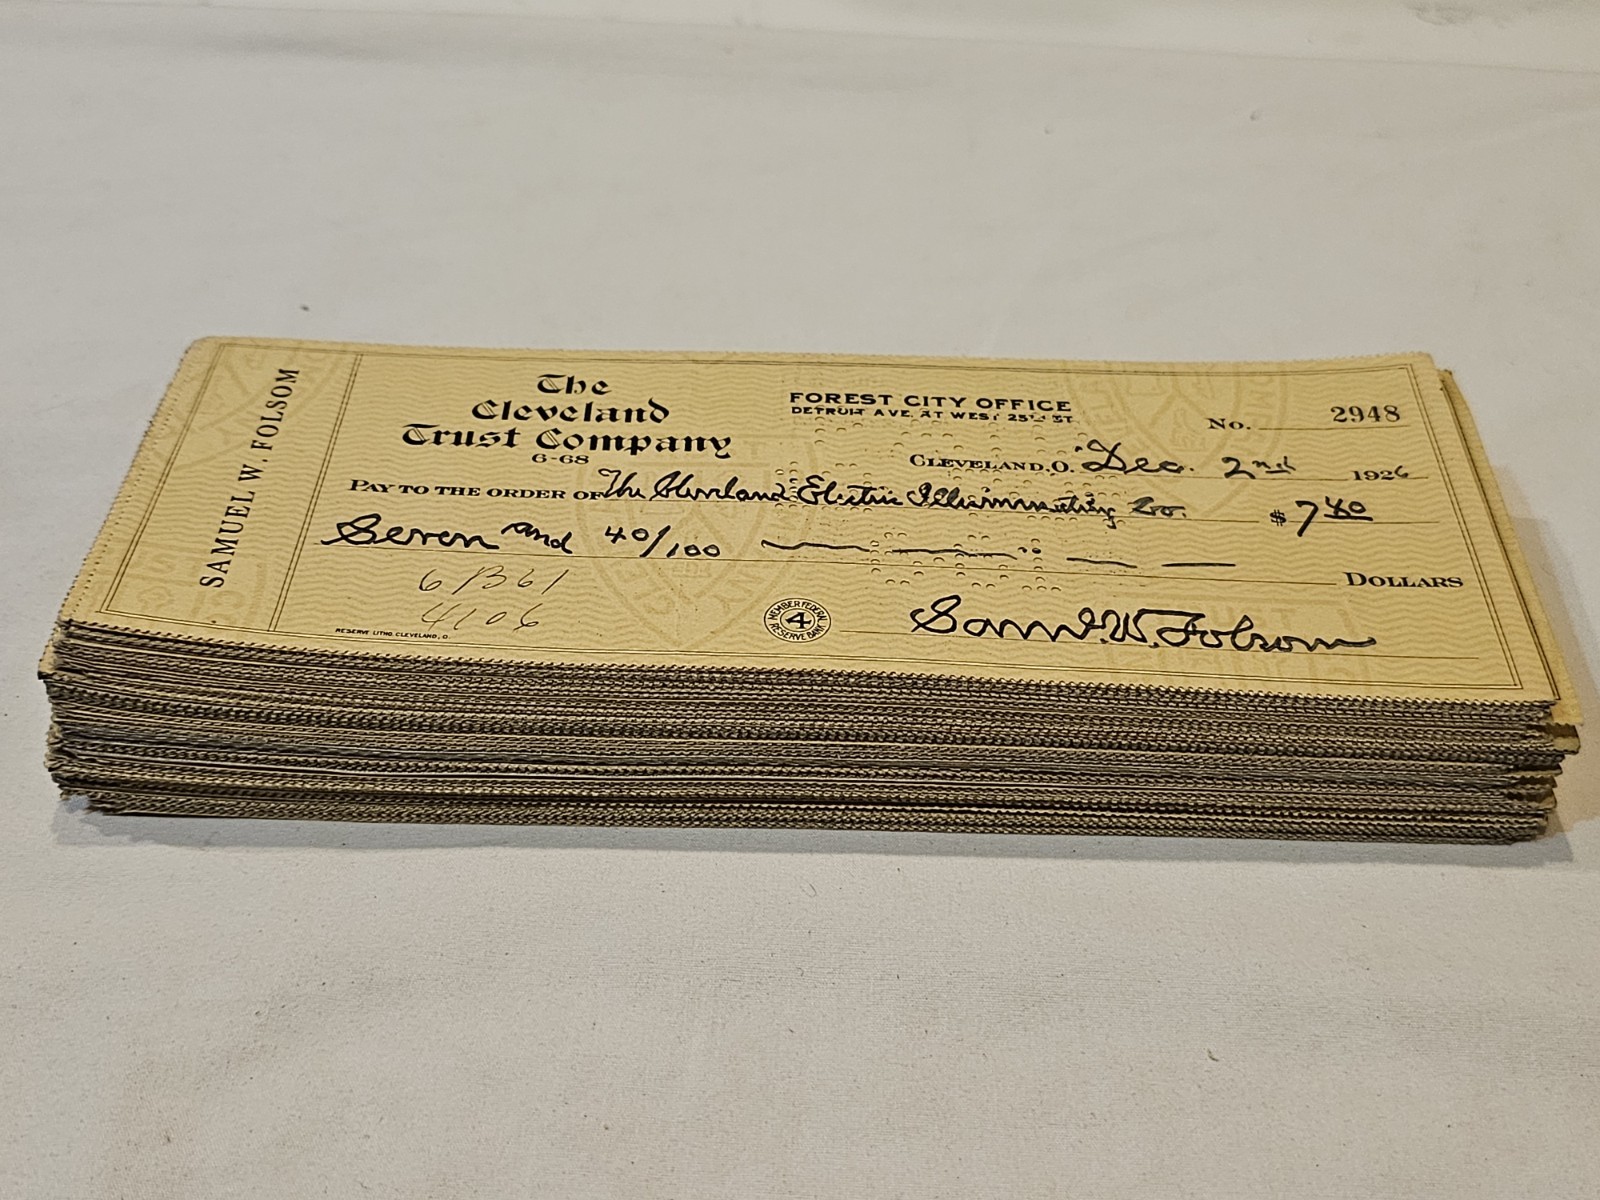 SAMUEL W. FOLSOM
The
Cleveland
Trust Company
6-68
FOREST CITY OFFICE
DETROIT AVE. AT WEST 25TH ST.
No. 2948
CLEVELAND, O. Dec. 2nd 1926
PAY TO THE ORDER OF The Cleveland Electric Illuminating Co. $7 40
Seven and 40/100 DOLLARS
6 B61
4106
RESERVE LITHO. CLEVELAND, O.
MEMBER FEDERAL RESERVE BANK
4
Sam'l. W. Folsom